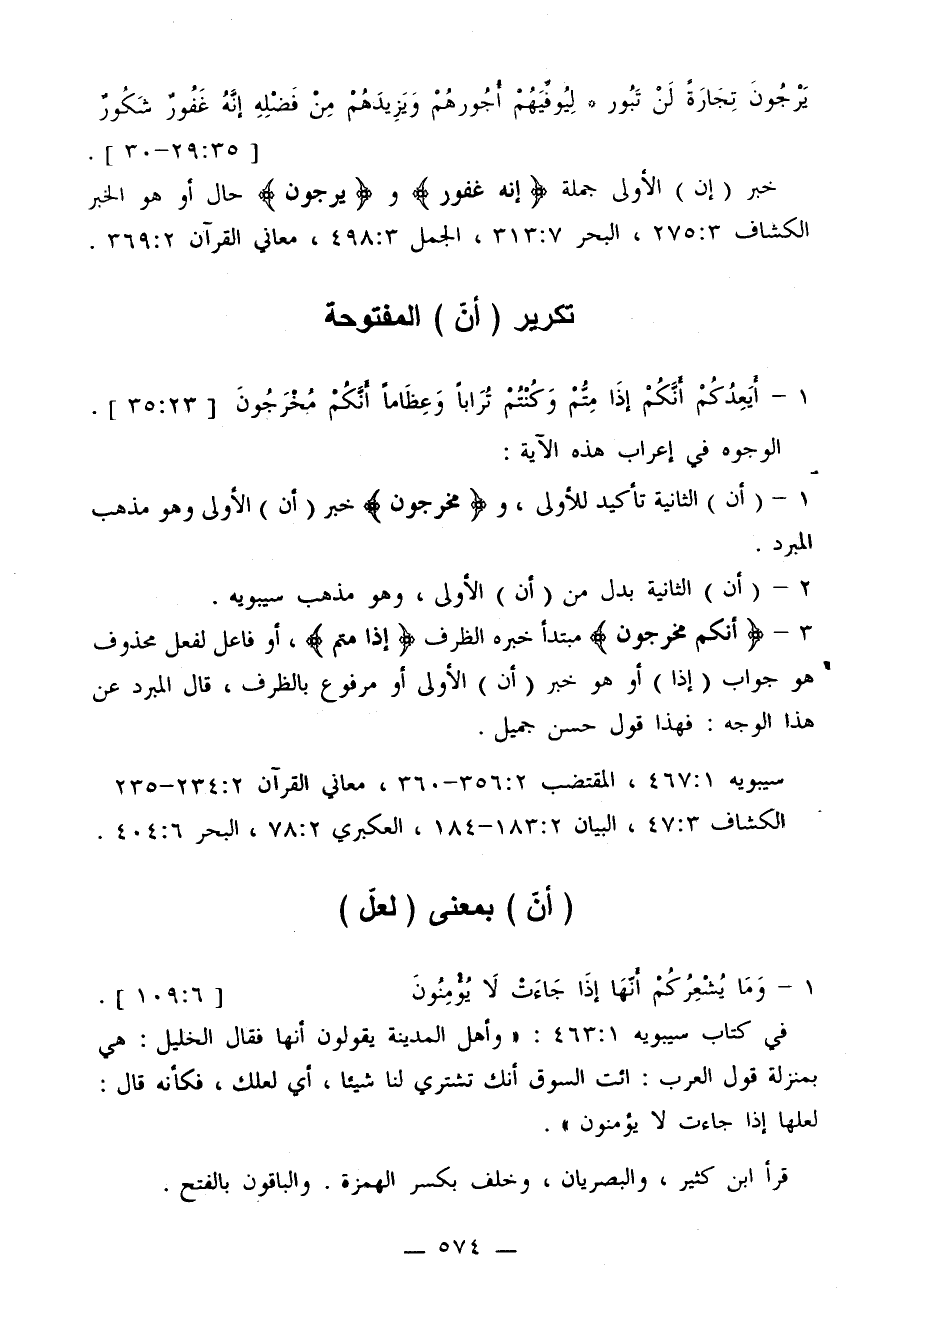 يَرْجُونَ تِجَارَةً لَنْ تَبُور * لِيُوفِّيَهُمْ أُجُورهُمْ وَيَزِيدَهُمْ مِنْ فَضْلِهِ إنَّهُ غَفُورٌ شَكُورٌ
[ ٢٩:٣٥–٣٠ ] .
خبر ( إن ) الأولى جملة ﴿ إنه غفور ﴾ و ﴿ يرجون ﴾ حال أو هو الخبر
الكشاف ٢٧٥:٣ ، البحر ٣١٣:٧ ، الجمل ٤٩٨:٣ ، معاني القرآن ٣٦٩:٢ .
تكرير ( أنّ ) المفتوحة
١ – أَيَعِدُكُمْ أَنَّكُمْ إذَا مِتُّمْ وَكُنْتُمْ تُرَاباً وَعِظَاماً أَنَّكُمْ مُخْرَجُونَ [ ٣٥:٢٣ ] .
الوجوه في إعراب هذه الآية :
١ – ( أن ) الثانية تأكيد للأولى ، و ﴿ مخرجون ﴾ خبر ( أن ) الأولى وهو مذهب
المبرد .
٢ – ( أن ) الثانية بدل من ( أن ) الأولى ، وهو مذهب سيبويه .
٣ – ﴿ أنكم مخرجون ﴾ مبتدأ خبره الظرف ﴿ إذا متم ﴾ ، أو فاعل لفعل محذوف
هو جواب ( إذا ) أو هو خبر ( أن ) الأولى أو مرفوع بالظرف ، قال المبرد عن
هذا الوجه : فهذا قول حسن جميل .
سيبويه ٤٦٧:١ ، المقتضب ٣٥٦:٢–٣٦٠ ، معاني القرآن ٢٣٤:٢–٢٣٥
الكشاف ٤٧:٣ ، البيان ١٨٣:٢–١٨٤ ، العكبري ٧٨:٢ ، البحر ٤٠٤:٦ .
( أنّ ) بمعنى ( لعلّ )
١ – وَمَا يُشْعِرُكُمْ أَنَّهَا إذَا جَاءَتْ لَا يُؤْمِنُونَ [ ١٠٩:٦ ] .
في كتاب سيبويه ٤٦٣:١ : « وأهل المدينة يقولون أنها فقال الخليل : هي
بمنزلة قول العرب : ائت السوق أنك تشتري لنا شيئا ، أي لعلك ، فكأنه قال :
لعلها إذا جاءت لا يؤمنون » .
قرأ ابن كثير ، والبصريان ، وخلف بكسر الهمزة . والباقون بالفتح .
— ٥٧٤ —